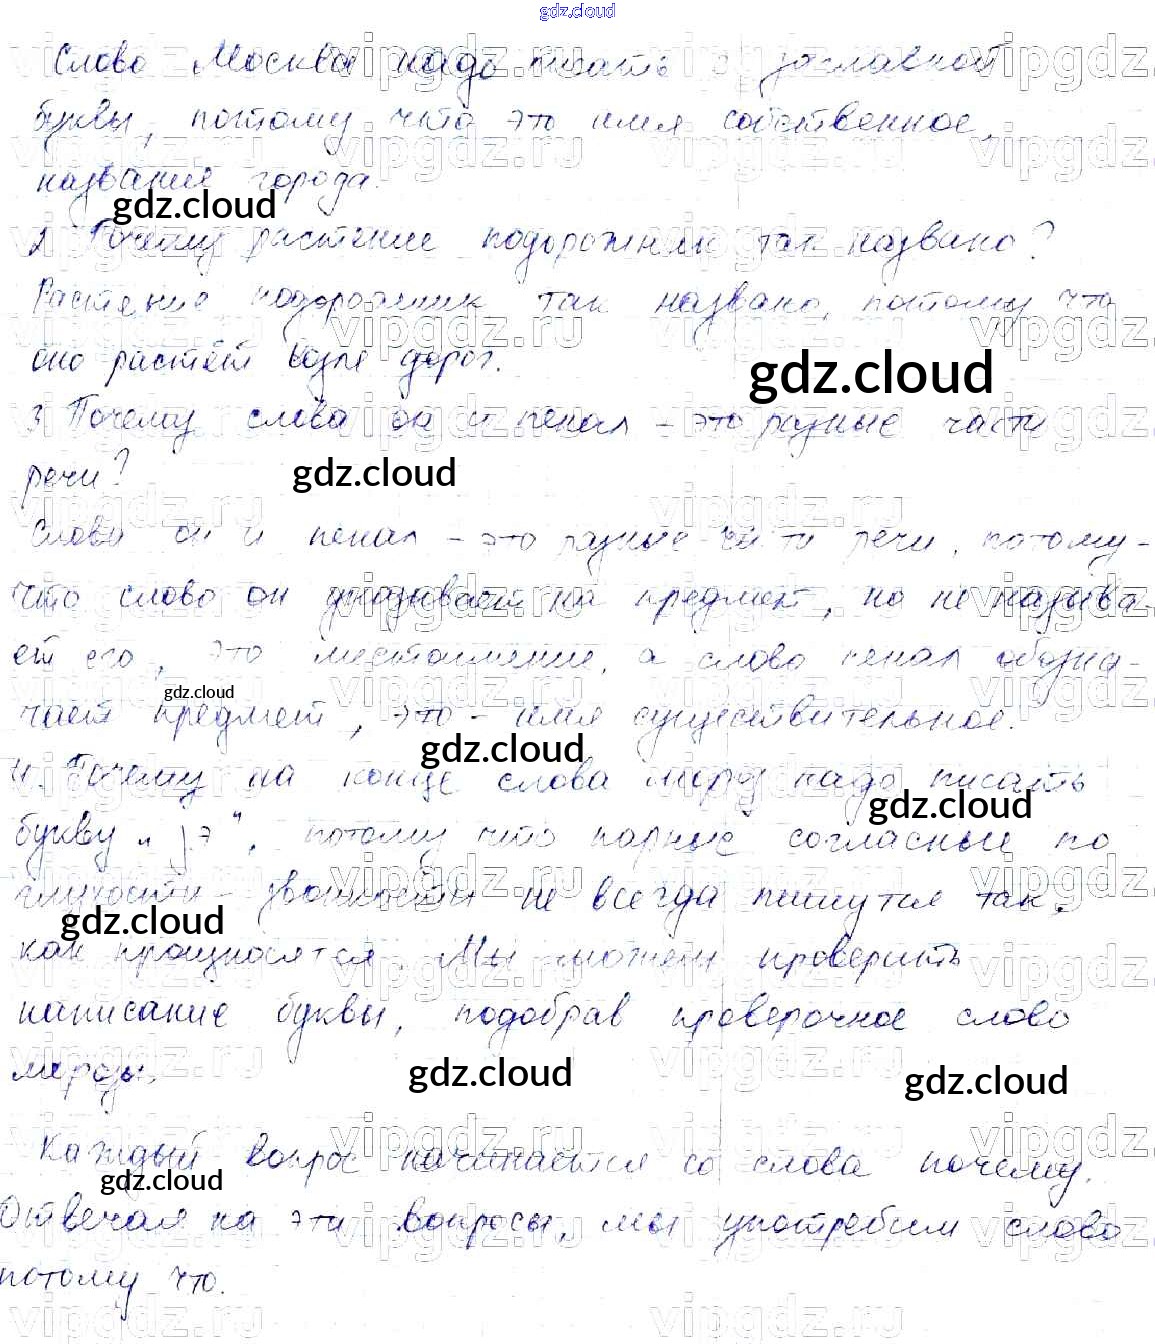 gdz.cloud
Слово Москва надо писать с заглавной
буквы, потому что это имя собственное,
название города.
gdz.cloud
2. Почему растение подорожник так названо?
Растение подорожник так названо, потому что
оно растёт возле дорог.
gdz.cloud
3. Почему слова он и пенал – это разные части
речи?
gdz.cloud
Слова он и пенал – это разные части речи, потому-
что слово он указывает на предмет, но не называ-
ет его, это местоимение, а слово пенал обозна-
gdz.cloud
чает предмет, это – имя существительное.
gdz.cloud
4. Почему на конце слова мороз надо писать
gdz.cloud
букву „з", потому что парные согласные по
глухости – звонкости не всегда пишутся так,
gdz.cloud
как произносятся. Мы можем проверить
написание буквы, подобрав проверочное слово
морозы.
gdz.cloud
gdz.cloud
Каждый вопрос начинается со слова почему.
gdz.cloud
Отвечая на эти вопросы, мы употребим слово
потому что.
vipgdz.ru